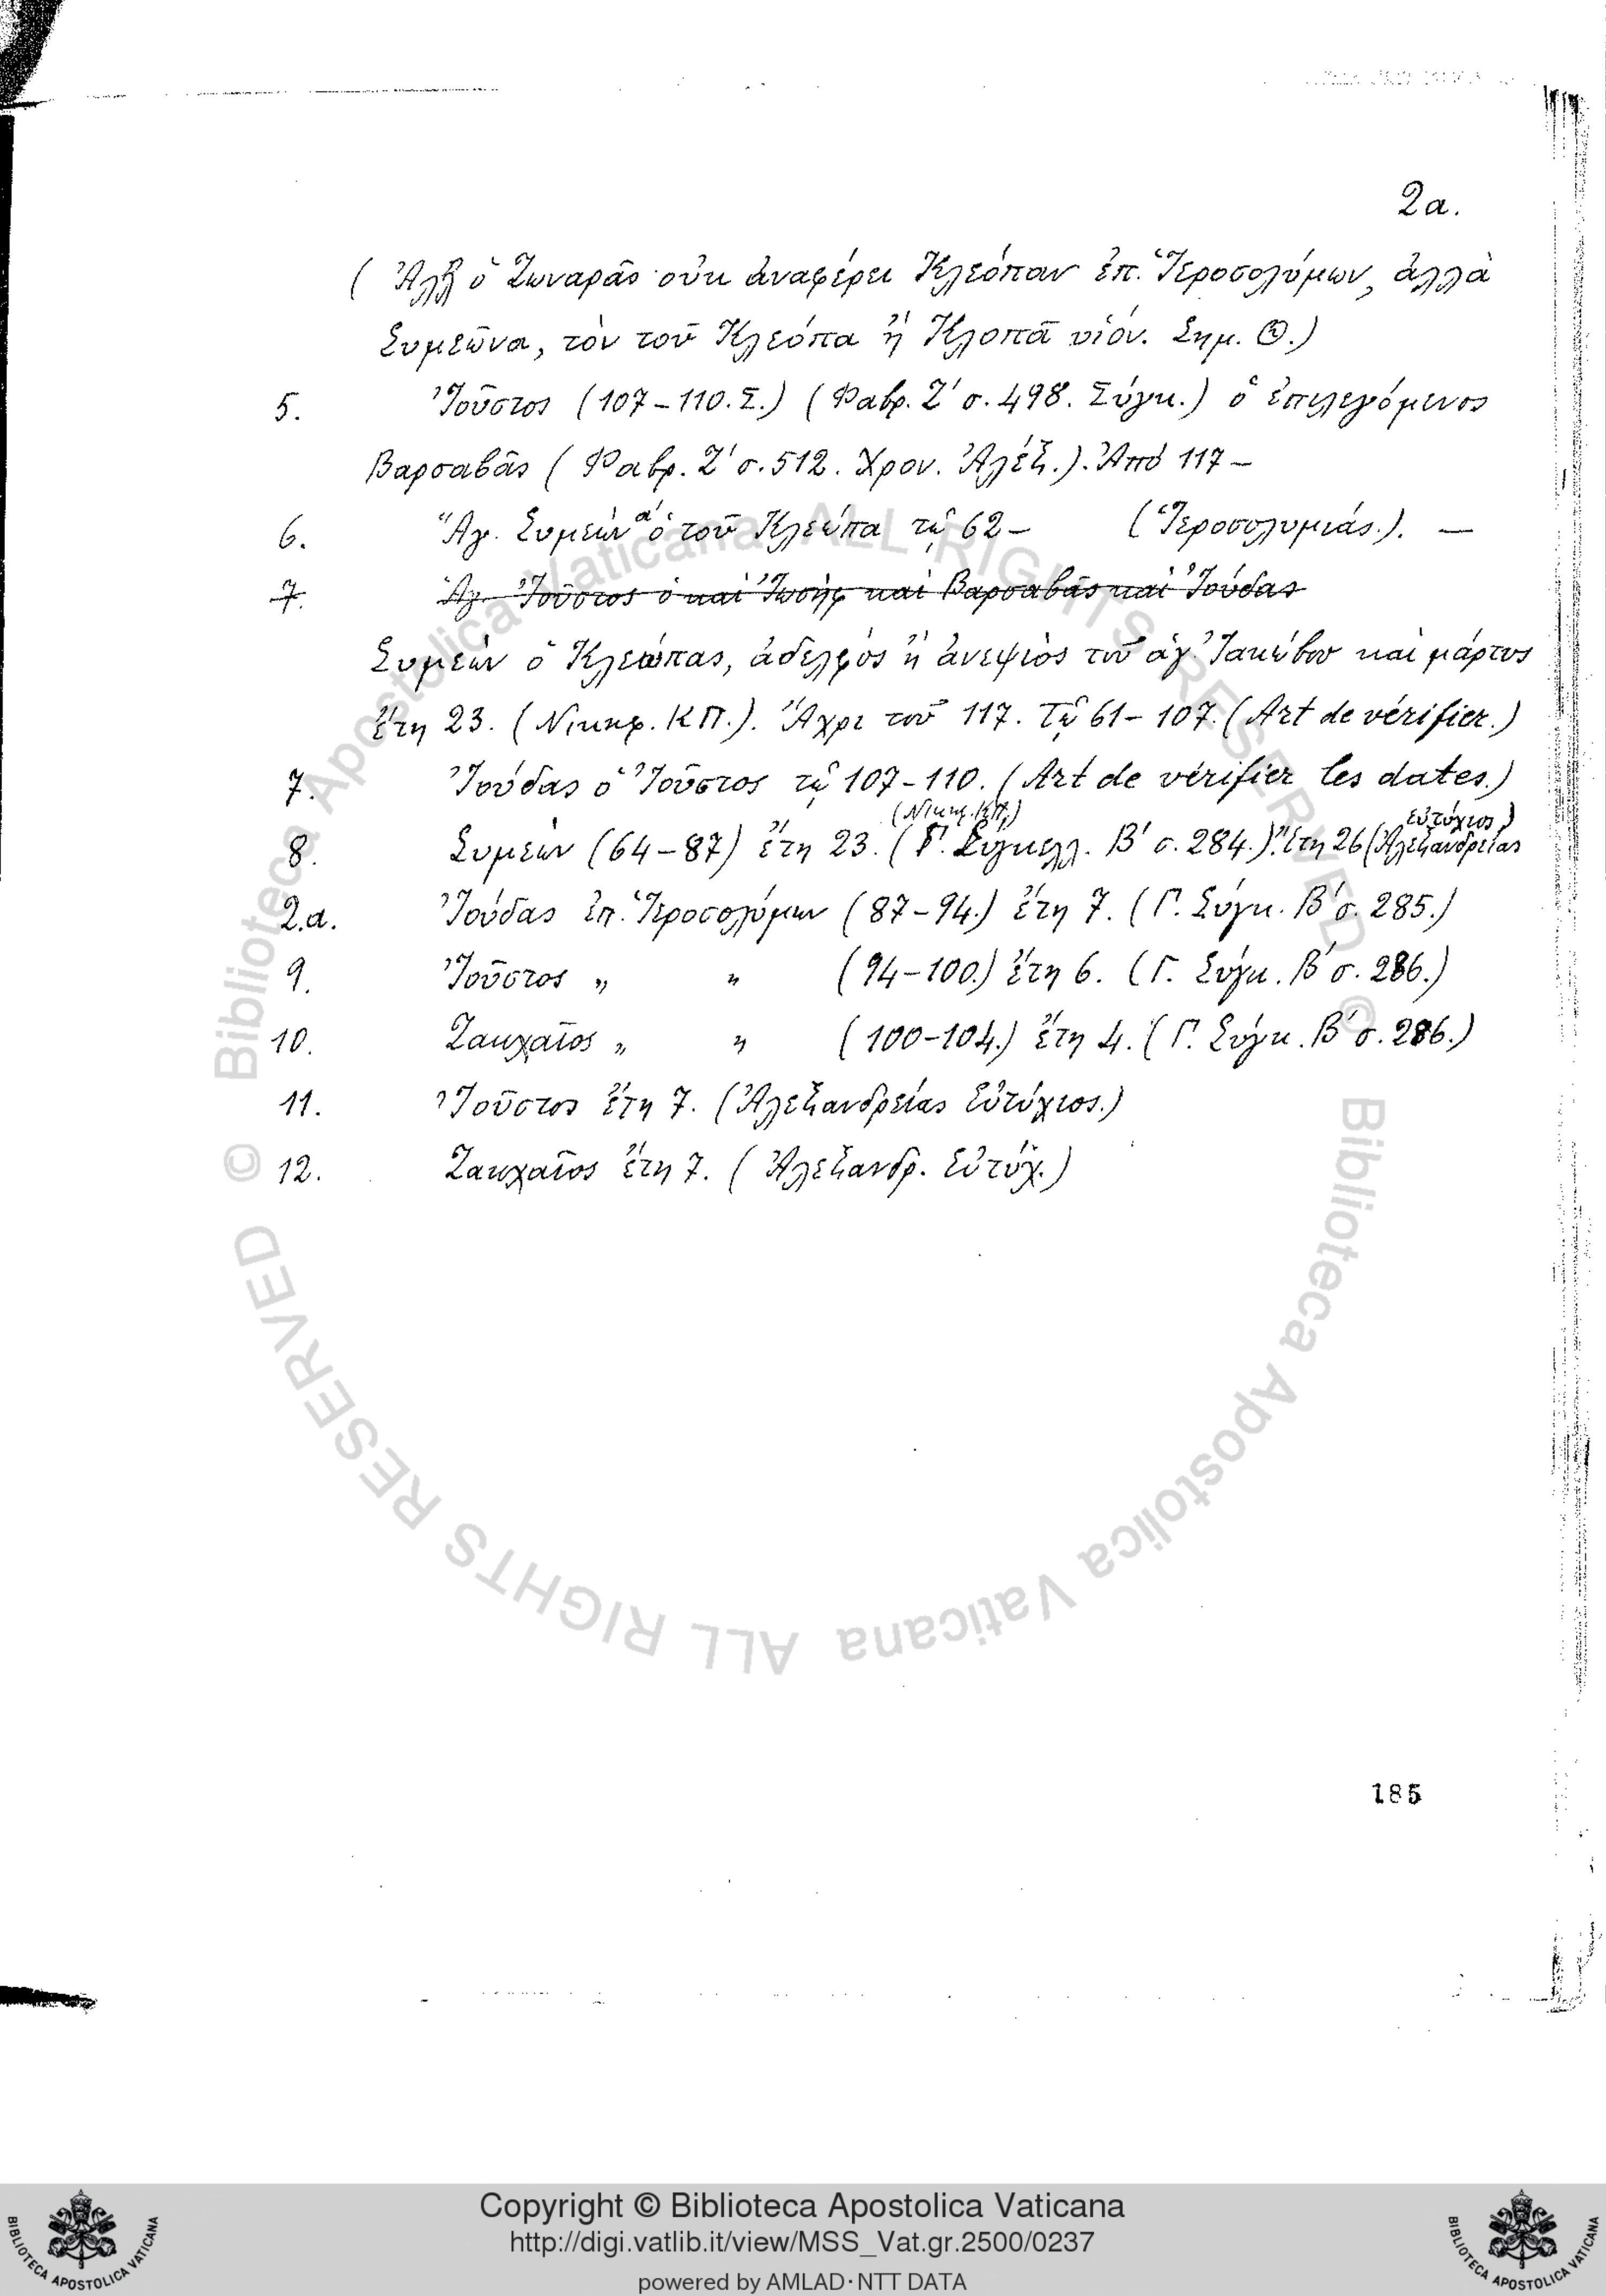 2α.
( Ἀλλ' ὁ Ζωναρᾶς οὐκ ἀναφέρει Κλεόπαν ἐπ. Ἱεροσολύμων, ἀλλὰ
Συμεῶνα, τὸν τοῦ Κλεόπα ἢ Κλοπᾶ υἱόν. Σημ. Θ.)
5. Ἰοῦστος (107-110. Σ.) (Φαβρ. Ζ' σ. 498. Σύγκ.) ὁ ἐπιλεγόμενος
Βαρσαβᾶς ( Φαβρ. Ζ' σ. 512. Χρον. Ἀλέξ.). Ἀπό 117 –
6. Ἅγ. Συμεὼν α' ὁ τοῦ Κλεώπα τῷ 62 – (Ἱεροσολυμιάς.). –
7. Ἅγ. Ἰοῦστος ὁ καὶ Ἰωσὴφ καὶ Βαρσαβᾶς καὶ Ἰούδας
Συμεὼν ὁ Κλεώπας, ἀδελφὸς ἢ ἀνεψιὸς τοῦ ἁγ. Ἰακώβου καὶ μάρτυς
ἔτη 23. (Νικηφ. ΚΠ.). Ἄχρι τοῦ 117. Τῷ 61-107. (Art de vérifier.)
7. Ἰούδας ὁ Ἰοῦστος τῷ 107-110. (Art de vérifier les dates.)
(Νικηφ. ΚΠ.) Εὐτύχιος)
8. Συμεὼν (64-87) ἔτη 23. (Γ. Σύγκελλ. Β' σ. 284.). Ἔτη 26 (Ἀλεξανδρείας
2.α. Ἰούδας ἐπ. Ἱεροσολύμων (87-94.) ἔτη 7. (Γ. Σύγκ. Β' σ. 285.)
9. Ἰοῦστος „ „ (94-100.) ἔτη 6. (Γ. Σύγκ. Β' σ. 286.)
10. Ζακχαῖος „ „ (100-104.) ἔτη 4. (Γ. Σύγκ. Β' σ. 286.)
11. Ἰοῦστος ἔτη 7. (Ἀλεξανδρείας Εὐτύχιος.)
12. Ζακχαῖος ἔτη 7. (Ἀλεξανδρ. Εὐτύχ.)
185
© Biblioteca Apostolica Vaticana ALL RIGHTS RESERVED
© Biblioteca Apostolica Vaticana ALL RIGHTS RESERVED
Copyright © Biblioteca Apostolica Vaticana
http://digi.vatlib.it/view/MSS_Vat.gr.2500/0237
powered by AMLAD·NTT DATA
BIBLIOTECA APOSTOLICA VATICANA
BIBLIOTECA APOSTOLICA VATICANA